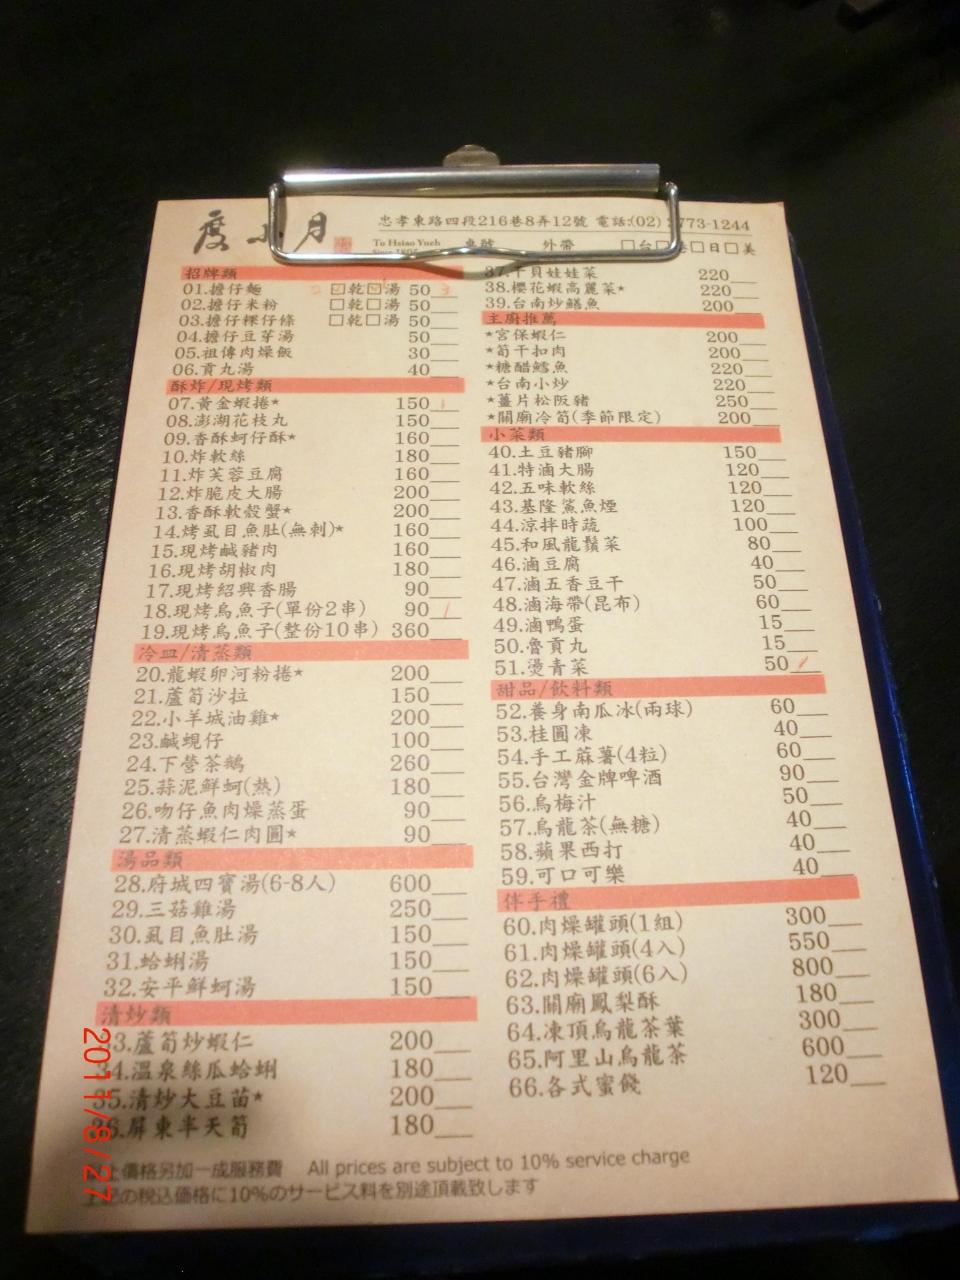 度小月
忠孝東路四段216巷8弄12號 電話:(02) 2773-1244
To Hsiao Yueh
Since 1895
桌號 外帶 □台□ □日□美
招牌類
01.擔仔麵 ☑乾☑湯 50 3
02.擔仔米粉 □乾□湯 50
03.擔仔粿仔條 □乾□湯 50
04.擔仔豆芽湯 50
05.祖傳肉燥飯 30
06.貢丸湯 40
酥炸/現烤類
07.黃金蝦捲★ 150 1
08.澎湖花枝丸 150
09.香酥蚵仔酥★ 160
10.炸軟絲 180
11.炸芙蓉豆腐 160
12.炸脆皮大腸 200
13.香酥軟殼蟹★ 200
14.烤虱目魚肚(無刺)★ 160
15.現烤鹹豬肉 160
16.現烤胡椒肉 180
17.現烤紹興香腸 90
18.現烤烏魚子(單份2串) 90 1
19.現烤烏魚子(整份10串) 360
冷皿/清蒸類
20.龍蝦卵河粉捲★ 200
21.蘆筍沙拉 150
22.小羊城油雞★ 200
23.鹹蜆仔 100
24.下營茶鵝 260
25.蒜泥鮮蚵(熱) 180
26.吻仔魚肉燥蒸蛋 90
27.清蒸蝦仁肉圓★ 90
湯品類
28.府城四寶湯(6-8人) 600
29.三菇雞湯 250
30.虱目魚肚湯 150
31.蛤蜊湯 150
32.安平鮮蚵湯 150
清炒類
33.蘆筍炒蝦仁 200
34.溫泉絲瓜蛤蜊 180
35.清炒大豆苗★ 200
36.屏東半天筍 180
37.干貝娃娃菜 220
38.櫻花蝦高麗菜★ 220
39.台南炒鱔魚 200
主廚推薦
★宮保蝦仁 200
★筍干扣肉 200
★糖醋鱈魚 220
★台南小炒 220
★薑片松阪豬 250
★關廟冷筍(季節限定) 200
小菜類
40.土豆豬腳 150
41.特滷大腸 120
42.五味軟絲 120
43.基隆鯊魚煙 120
44.涼拌時蔬 100
45.和風龍鬚菜 80
46.滷豆腐 40
47.滷五香豆干 50
48.滷海帶(昆布) 60
49.滷鴨蛋 15
50.魯貢丸 15
51.燙青菜 50 /
甜品/飲料類
52.養身南瓜冰(兩球) 60
53.桂圓凍 40
54.手工蔴薯(4粒) 60
55.台灣金牌啤酒 90
56.烏梅汁 50
57.烏龍茶(無糖) 40
58.蘋果西打 40
59.可口可樂 40
伴手禮
60.肉燥罐頭(1組) 300
61.肉燥罐頭(4入) 550
62.肉燥罐頭(6入) 800
63.關廟鳳梨酥 180
64.凍頂烏龍茶葉 300
65.阿里山烏龍茶 600
66.各式蜜餞 120
以上價格另加一成服務費 All prices are subject to 10% service charge
上記の税込価格に10%のサービス料を別途頂載致します
2011/8/27